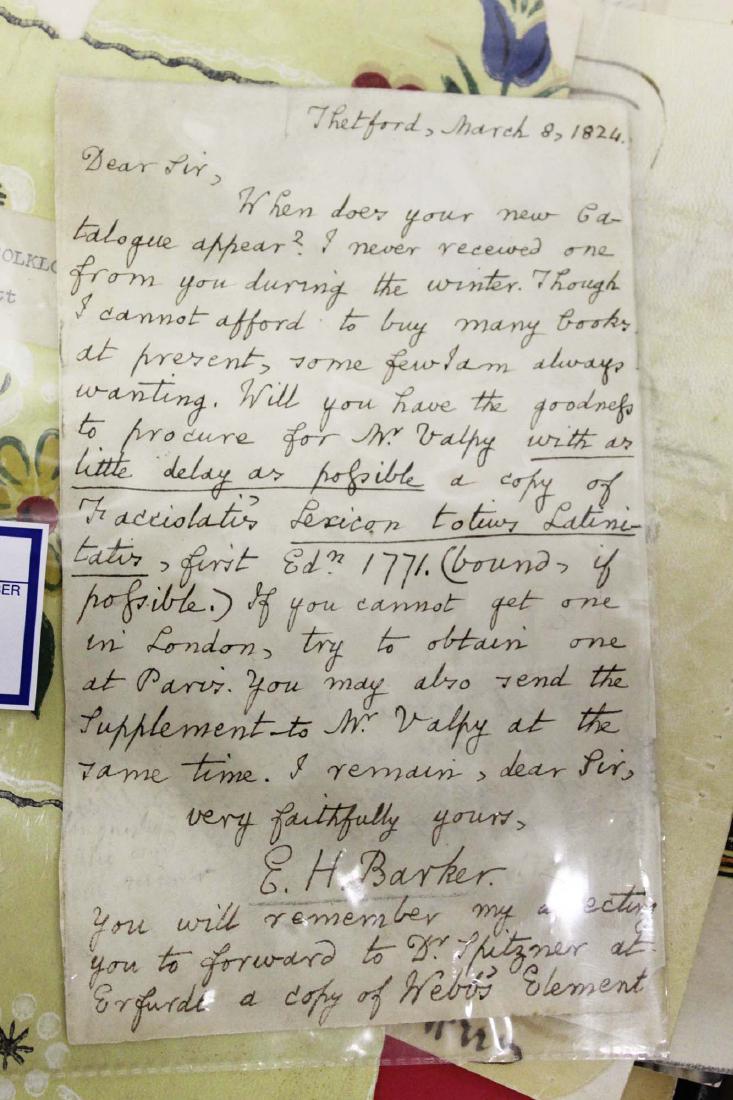 Thetford, March 8, 1824.
Dear Sir,
When does your new Ca-
talogue appear? I never received one
from you during the winter. Though
I cannot afford to buy many books
at present, some few I am always
wanting. Will you have the goodneſs
to procure for Mr Valpy with as
little delay as poſsible a copy of
Facciolati's Lexicon totius Latini-
tatis, first Edn 1771. (bound, if
poſsible.) If you cannot get one
in London, try to obtain one
at Paris. You may also send the
Supplement to Mr Valpy at the
same time. I remain, dear Sir,
very faithfully yours,
E. H. Barker.
You will remember my
you to forward to Dr Spitzner at
Erfurdt a copy of Webb's Element
OLKLO
ct
BER